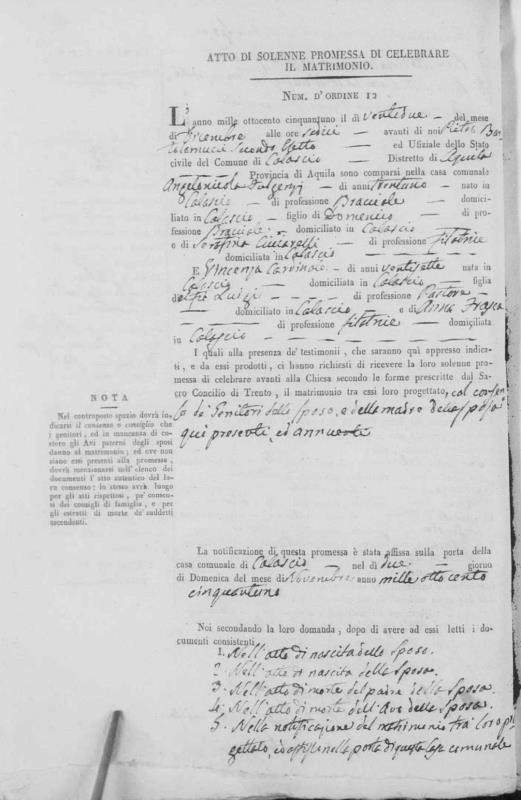 ATTO DI SOLENNE PROMESSA DI CELEBRARE
IL MATRIMONIO.
NUM. D'ORDINE 12
L'anno mille ottocento cinquantuno il dì ventidue del mese
di Dicembre alle ore sedici avanti di noi Pietro Bar
tolomucci Secondo Eletto ed Ufiziale dello Stato
civile del Comune di Calascio Distretto di Aquila
Provincia di Aquila sono comparsi nella casa comunale
Angelonicola di anni trentuno nato in
Calascio di professione Bracciale domici-
liato in Calascio figlio di Domenico di pro-
fessione Bracciale domiciliato in Calascio
e di Serafina Ciccarelli di professione filatrice
domiciliata in Calascio
E Vincenza di anni ventisette nata in
Calascio domiciliata in Calascio figlia
del fu Luigi di professione Pastore
domiciliato in Calascio e di Anna Frasca
di professione filatrice domiciliata
in Calascio
I quali alla presenza de' testimonii, che saranno quì appresso indica-
ti, e da essi prodotti, ci hanno richiesti di ricevere la loro solenne pro-
messa di celebrare avanti alla Chiesa secondo le forme prescritte dal Sa-
cro Concilio di Trento, il matrimonio tra essi loro progettato, col consen
so de' Genitori dello Sposo, e della madre della Sposa
qui presenti, ed annuenti
NOTA
Nel controposto spazio dovrà in-
dicarsi il consenso o consiglio che
i genitori, ed in mancanza di co-
stero gli Avi paterni degli sposi
danno al matrimonio; ed ove non
siano essi presenti alla promessa,
dovrà menzionarsi nell'elenco dei
documenti l'atto autentico del lo-
ro consenso: lo stesso avrà luogo
per gli atti rispettosi, pe' consen-
si dei consigli di famiglia, e per
gli estratti di morte de' suddetti
ascendenti.
La notificazione di questa promessa è stata affissa sulla porta della
casa comunale di Calascio nel dì due giorno
di Domenica del mese di Novembre anno mille otto cento
cinquantuno
Noi secondando la loro domanda, dopo di avere ad essi letti i do-
cumenti consistenti
1. Nell'atto di nascita dello Sposo.
2. Nell'atto di nascita della Sposa.
3. Nell'atto di morte del padre della Sposa.
4. Nell'atto di morte dell'Avo della Sposa.
5. Nella notificazione del matrimonio tra loro pro
gettato, ed affissa nella porta di questa Casa comunale